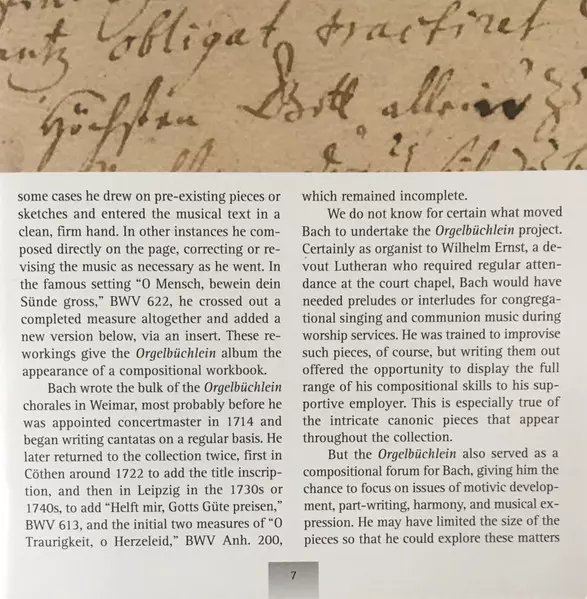 antz obligat tractiret
Höchsten Gott allein
some cases he drew on pre-existing pieces or
sketches and entered the musical text in a
clean, firm hand. In other instances he com-
posed directly on the page, correcting or re-
vising the music as necessary as he went. In
the famous setting “O Mensch, bewein dein
Sünde gross,” BWV 622, he crossed out a
completed measure altogether and added a
new version below, via an insert. These re-
workings give the Orgelbüchlein album the
appearance of a compositional workbook.
Bach wrote the bulk of the Orgelbüchlein
chorales in Weimar, most probably before he
was appointed concertmaster in 1714 and
began writing cantatas on a regular basis. He
later returned to the collection twice, first in
Cöthen around 1722 to add the title inscrip-
tion, and then in Leipzig in the 1730s or
1740s, to add “Helft mir, Gotts Güte preisen,”
BWV 613, and the initial two measures of “O
Traurigkeit, o Herzeleid,” BWV Anh. 200,
which remained incomplete.
We do not know for certain what moved
Bach to undertake the Orgelbüchlein project.
Certainly as organist to Wilhelm Ernst, a de-
vout Lutheran who required regular atten-
dance at the court chapel, Bach would have
needed preludes or interludes for congrega-
tional singing and communion music during
worship services. He was trained to improvise
such pieces, of course, but writing them out
offered the opportunity to display the full
range of his compositional skills to his sup-
portive employer. This is especially true of
the intricate canonic pieces that appear
throughout the collection.
But the Orgelbüchlein also served as a
compositional forum for Bach, giving him the
chance to focus on issues of motivic develop-
ment, part-writing, harmony, and musical ex-
pression. He may have limited the size of the
pieces so that he could explore these matters
7